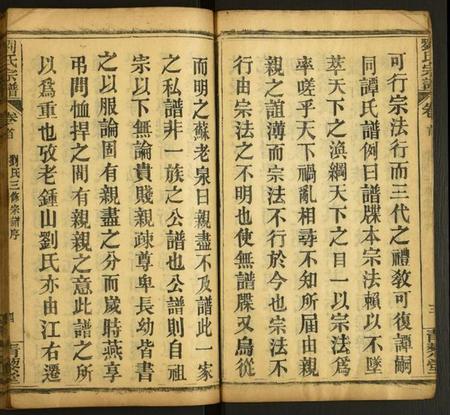 可行宗法行而三代之禮敎可復譚嗣
同譚氏譜例曰譜牒本宗法賴以不墜
萃天下之渙綱天下之目一以宗法爲
率嗟乎天下禍亂相尋不知所屆由親
親之誼薄而宗法不行於今也宗法不
行由宗法之不明也使無譜牒又烏從
而明之蘇老泉曰親盡不及譜此一家
之私譜非一族之公譜也公譜則自祖
宗以下無論貴賤親疎尊卑長幼皆書
之以服論固有親盡之分而歲時燕享
弔問恤捍之間有親親之意此譜之所
以爲重也攷老鍾山劉氏亦由江右遷
劉氏宗譜
卷首
劉氏三修宗譜序
四
青藜堂
劉氏宗譜
卷首
三
青藜堂